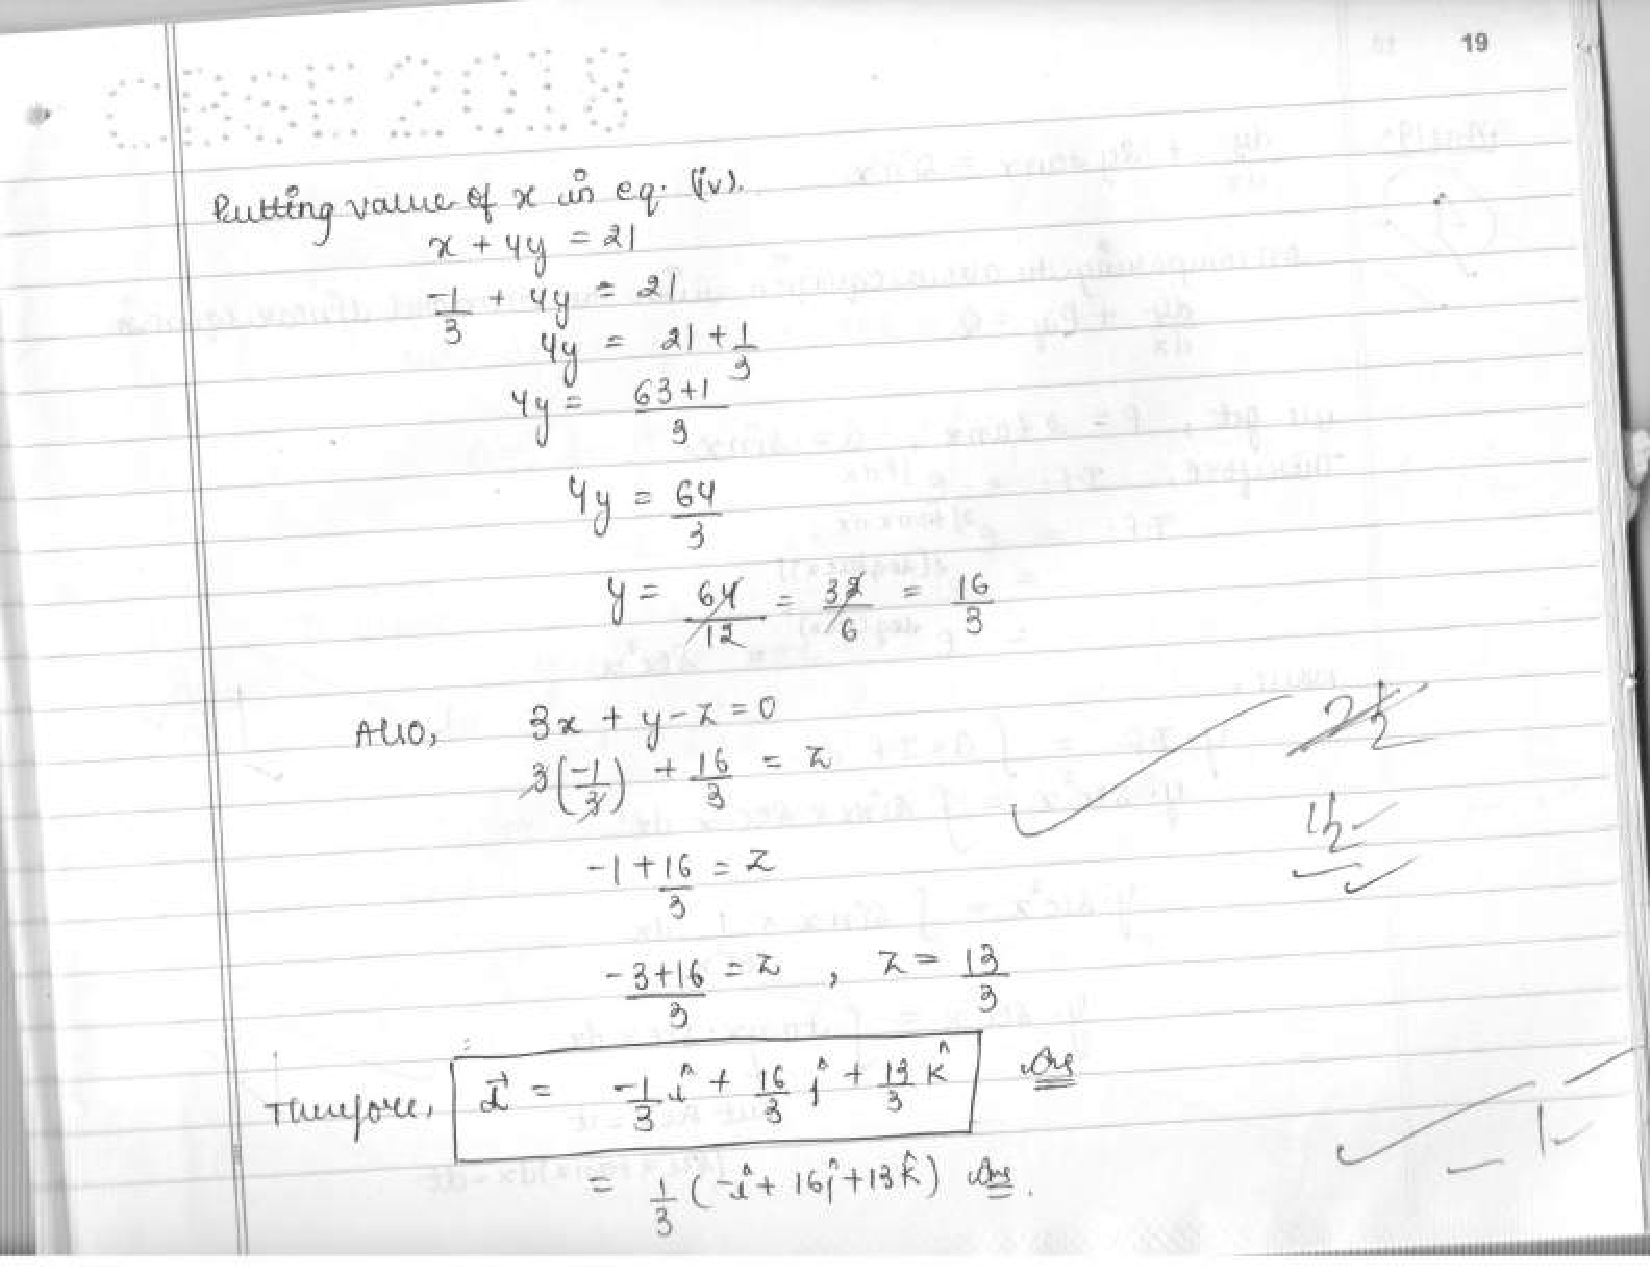 19
CBSE 2018
Putting value of x in eq. (iv).
x + 4y = 21
-1/3 + 4y = 21
4y = 21 + 1/3
4y = 63+1/3
4y = 64/3
y = 64/12 = 32/6 = 16/3
Also, 3x + y - z = 0
3(-1/3) + 16/3 = z
-1 + 16/3 = z
-3+16/3 = z , z = 13/3
Therefore, d⃗ = -1/3 î + 16/3 ĵ + 13/3 k̂ Ans
= 1/3 (-î + 16ĵ + 13k̂) Ans.